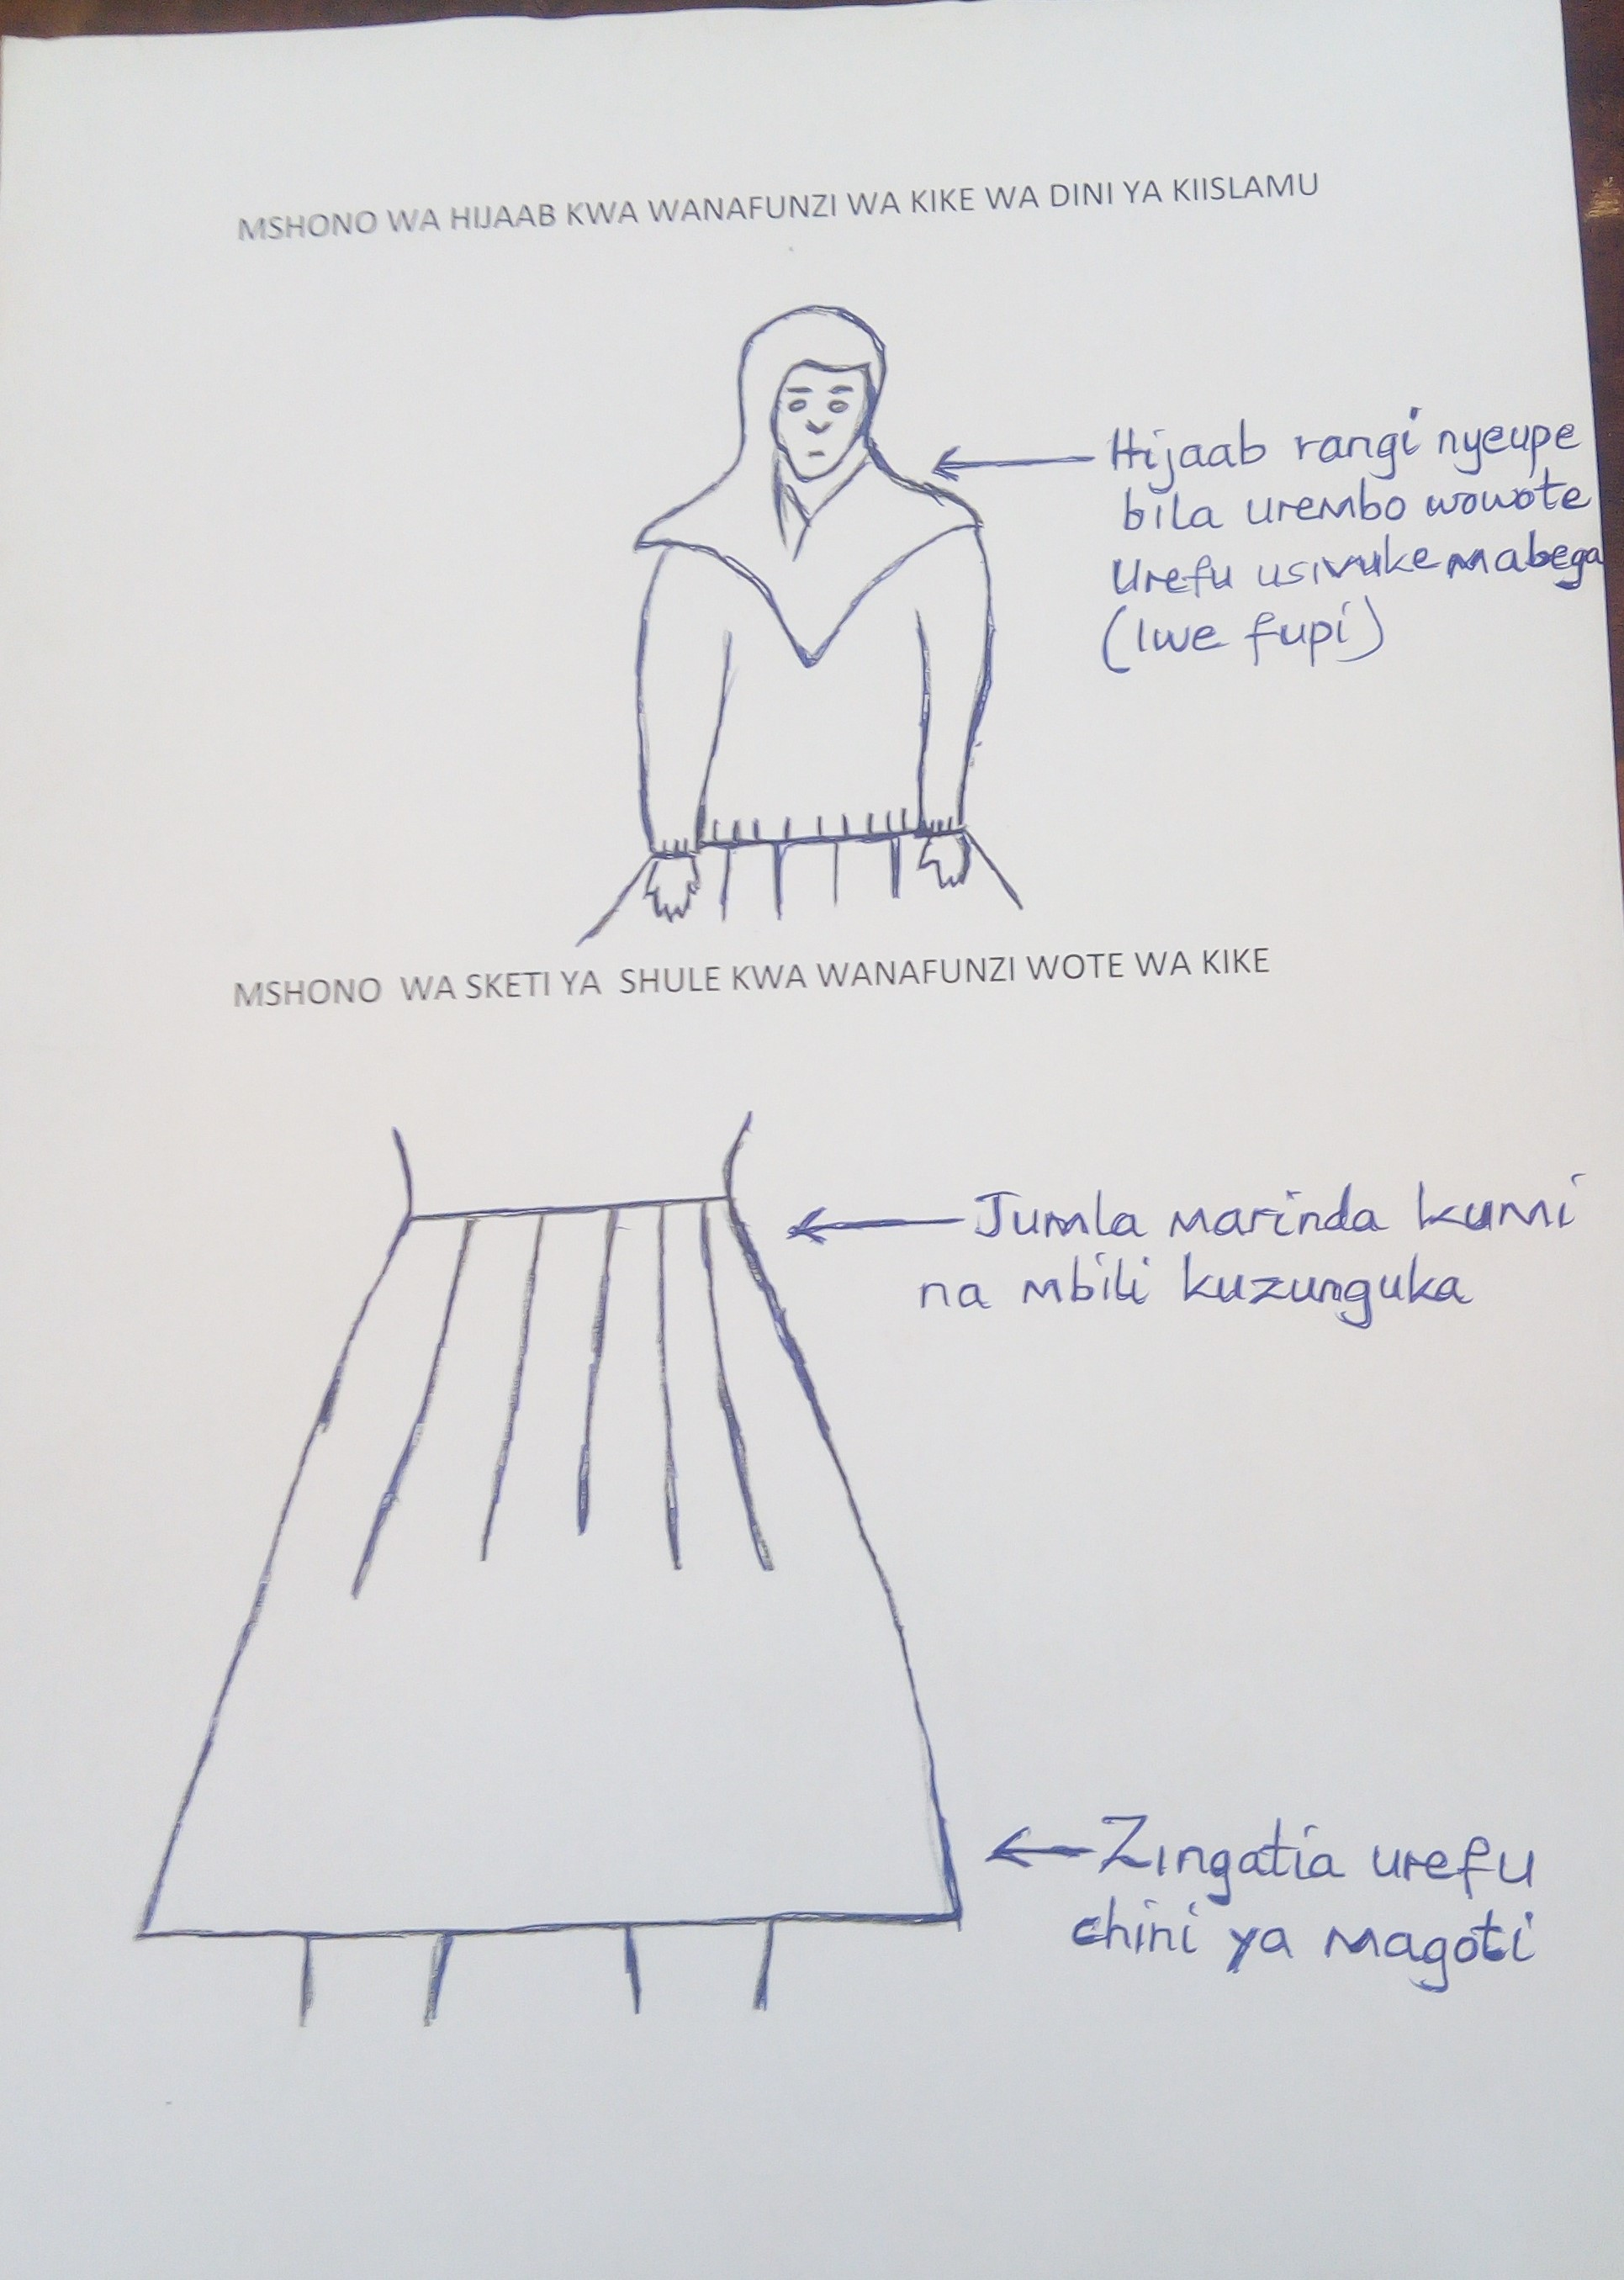 MSHONO WA HIJAAB KWA WANAFUNZI WA KIKE WA DINI YA KIISLAMU
Hijaab rangi nyeupe
bila urembo wowote
Urefu usivuke mabega
(Iwe fupi)
MSHONO WA SKETI YA SHULE KWA WANAFUNZI WOTE WA KIKE
Jumla marinda kumi
na mbili kuzunguka
Zingatia urefu
chini ya magoti